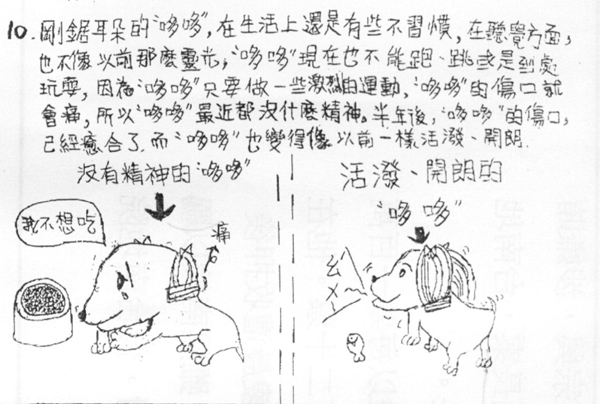 10. 剛鋸耳朵的“哆哆”，在生活上還是有些不習慣，在聽覺方面，
也不像以前那麼靈光，“哆哆”現在也不能跑、跳或是到處
玩耍，因為“哆哆”只要做一些激烈的運動，“哆哆”的傷口就
會痛，所以“哆哆”最近都沒什麼精神。半年後，“哆哆”的傷口，
已經癒合了。而“哆哆”也變得像以前一樣活潑、開朗.
沒有精神的“哆哆”
活潑、開朗的
“哆哆”
我不想吃
痛